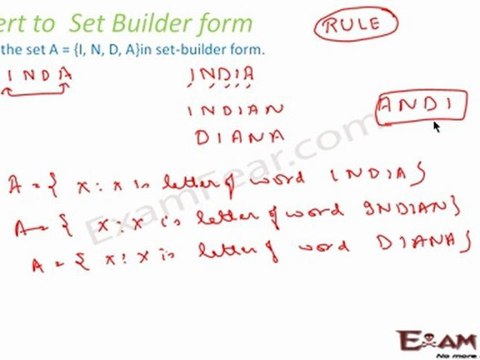 ert to Set Builder form
RULE
the set A = {I, N, D, A}in set-builder form.
I N D A
INDIA
INDIAN
DIANA
ANDI
A = { x : x is letter of word INDIA}
A = { x : x is letter of word INDIAN}
A = { x : x is letter of word DIANA}
ExamFear.com
EXAM
No more